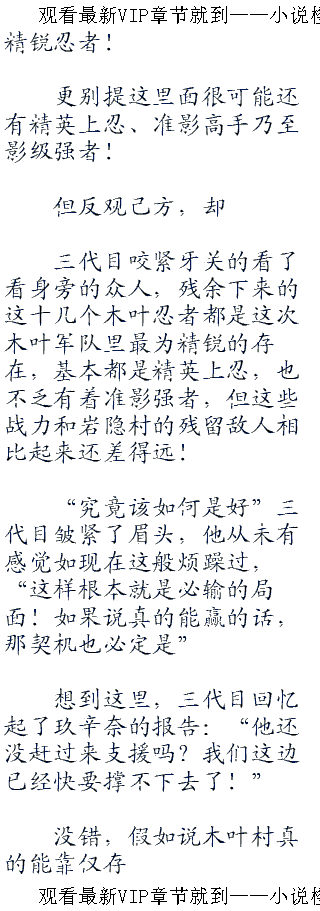 观看最新VIP章节就到——小说楼
精锐忍者！
更别提这里面很可能还
有精英上忍、准影高手乃至
影级强者！
但反观己方，却
三代目咬紧牙关的看了
看身旁的众人，残余下来的
这十几个木叶忍者都是这次
木叶军队里最为精锐的存
在，基本都是精英上忍，也
不乏有着准影强者，但这些
战力和岩隐村的残留敌人相
比起来还差得远！
“究竟该如何是好”三
代目皱紧了眉头，他从未有
感觉如现在这般烦躁过，
“这样根本就是必输的局
面！如果说真的能赢的话，
那契机也必定是”
想到这里，三代目回忆
起了玖辛奈的报告：“他还
没赶过来支援吗？我们这边
已经快要撑不下去了！”
没错，假如说木叶村真
的能靠仅存
观看最新VIP章节就到——小说楼